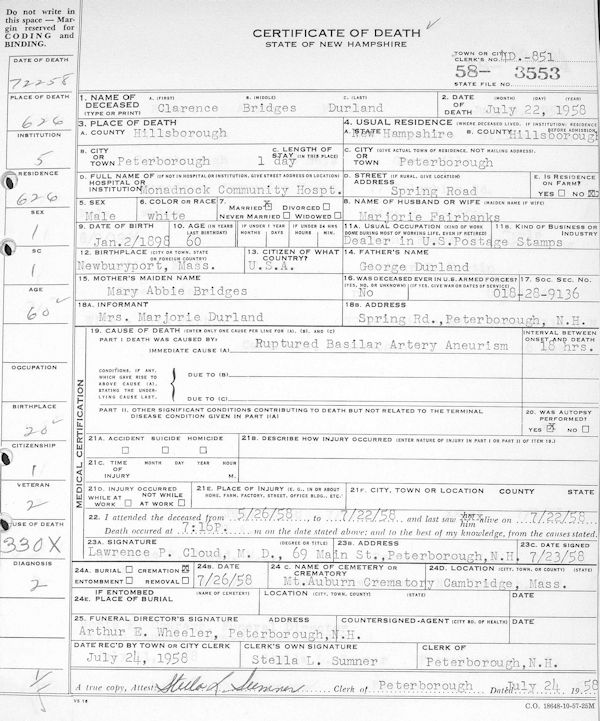 Do not write in
this space — Mar-
gin reserved for
CODING and
BINDING.
DATE OF DEATH
72258
PLACE OF DEATH
626
INSTITUTION
5
RESIDENCE
626
SEX
1
SC
1
AGE
60
OCCUPATION
BIRTHPLACE
20
CITIZENSHIP
1
VETERAN
2
CAUSE OF DEATH
330X
DIAGNOSIS
2
CERTIFICATE OF DEATH
STATE OF NEW HAMPSHIRE
TOWN OR CITY CLERK'S NO. D.-851
58- 3553
STATE FILE NO.
1. NAME OF DECEASED (TYPE OR PRINT) A. (FIRST) B. (MIDDLE) C. (LAST) 2. DATE OF DEATH (MONTH) (DAY) (YEAR)
Clarence Bridges Durland July 22, 1958
3. PLACE OF DEATH 4. USUAL RESIDENCE (WHERE DECEASED LIVED. IF INSTITUTION: RESIDENCE BEFORE ADMISSION)
A. COUNTY Hillsborough A. STATE New Hampshire B. COUNTY Hillsborough
B. CITY OR TOWN Peterborough C. LENGTH OF STAY (IN THIS PLACE) 1 day C. CITY (GIVE ACTUAL TOWN OF RESIDENCE, NOT MAILING ADDRESS). OR TOWN Peterborough
D. FULL NAME OF (IF NOT IN HOSPITAL OR INSTITUTION, GIVE STREET ADDRESS OR LOCATION) HOSPITAL OR INSTITUTION Monadnock Community Hospt. D. STREET (IF RURAL, GIVE LOCATION) ADDRESS Spring Road E. IS RESIDENCE ON FARM? YES NO X
5. SEX Male 6. COLOR OR RACE white 7. MARRIED X DIVORCED NEVER MARRIED WIDOWED 8. NAME OF HUSBAND OR WIFE (MAIDEN NAME IF WIFE) Marjorie Fairbanks
9. DATE OF BIRTH Jan.2/1898 10. AGE (IN YEARS LAST BIRTHDAY) 60 IF UNDER 1 YEAR MONTHS DAYS IF UNDER 24 HRS HOURS MIN. 11A. USUAL OCCUPATION (KIND OF WORK DONE DURING MOST OF WORKING LIFE, EVEN IF RETIRED) 11B. KIND OF BUSINESS OR INDUSTRY
Dealer in U.S.Postage Stamps
12. BIRTHPLACE (CITY OR TOWN, STATE OR FOREIGN COUNTRY) Newburyport, Mass. 13. CITIZEN OF WHAT COUNTRY? U.S.A. 14. FATHER'S NAME George Durland
15. MOTHER'S MAIDEN NAME Mary Abbie Bridges 16. WAS DECEASED EVER IN U.S. ARMED FORCES? (YES, NO, OR UNKNOWN) (IF YES, GIVE WAR OR DATES OF SERVICE) No 17. SOC. SEC. NO. 018-28-9136
18A. INFORMANT Mrs. Marjorie Durland 18B. ADDRESS Spring Rd.,Peterborough, N.H.
MEDICAL CERTIFICATION
19. CAUSE OF DEATH (ENTER ONLY ONE CAUSE PER LINE FOR (A), (B), AND (C) INTERVAL BETWEEN ONSET AND DEATH
PART I DEATH WAS CAUSED BY:
IMMEDIATE CAUSE (A) Ruptured Basilar Artery Aneurism 18 hrs.
CONDITIONS, IF ANY, WHICH GAVE RISE TO ABOVE CAUSE (A), STATING THE UNDERLYING CAUSE LAST.
DUE TO (B)
DUE TO (C)
PART II. OTHER SIGNIFICANT CONDITIONS CONTRIBUTING TO DEATH BUT NOT RELATED TO THE TERMINAL DISEASE CONDITION GIVEN IN PART I(A) 20. WAS AUTOPSY PERFORMED? YES X NO
21A. ACCIDENT SUICIDE HOMICIDE 21B. DESCRIBE HOW INJURY OCCURRED (ENTER NATURE OF INJURY IN PART I OR PART II OF ITEM 19.)
21C. TIME OF INJURY MONTH DAY YEAR HOUR M.
21D. INJURY OCCURRED WHILE AT WORK NOT WHILE AT WORK 21E. PLACE OF INJURY (E.G., IN OR ABOUT HOME, FARM, FACTORY, STREET, OFFICE BLDG., ETC.) 21F. CITY, TOWN OR LOCATION COUNTY STATE
22. I attended the deceased from 5/26/58, to 7/22/58 and last saw him alive on 7/22/58
Death occured at 7:16P. m on the date stated above; and to the best of my knowledge, from the causes stated.
23A. SIGNATURE (DEGREE OR TITLE) 23B. ADDRESS 23C. DATE SIGNED
Lawrence P. Cloud, M. D., 69 Main St.,Peterborough,N.H. 7/23/58
24A. BURIAL CREMATION X ENTOMBMENT REMOVAL 24B. DATE 7/26/58 24C. NAME OF CEMETERY OR CREMATORY 24D. LOCATION (CITY, TOWN, OR COUNTY) (STATE)
Mt.Auburn Crematory Cambridge, Mass.
IF ENTOMBED 24E. PLACE OF BURIAL (NAME OF CEMETERY) LOCATION (CITY, TOWN, COUNTY) (STATE) DATE
25. FUNERAL DIRECTOR'S SIGNATURE ADDRESS COUNTERSIGNED-AGENT (CITY BD. OF HEALTH) DATE
Arthur E. Wheeler, Peterborough,N.H.
DATE REC'D BY TOWN OR CITY CLERK CLERK'S OWN SIGNATURE CLERK OF
July 24, 1958 Stella L. Sumner Peterborough,N.H.
A true copy, Attest: Stella L. Sumner Clerk of Peterborough Dated July 24 1958
VS 18
C.O. 18648-10-57-25M